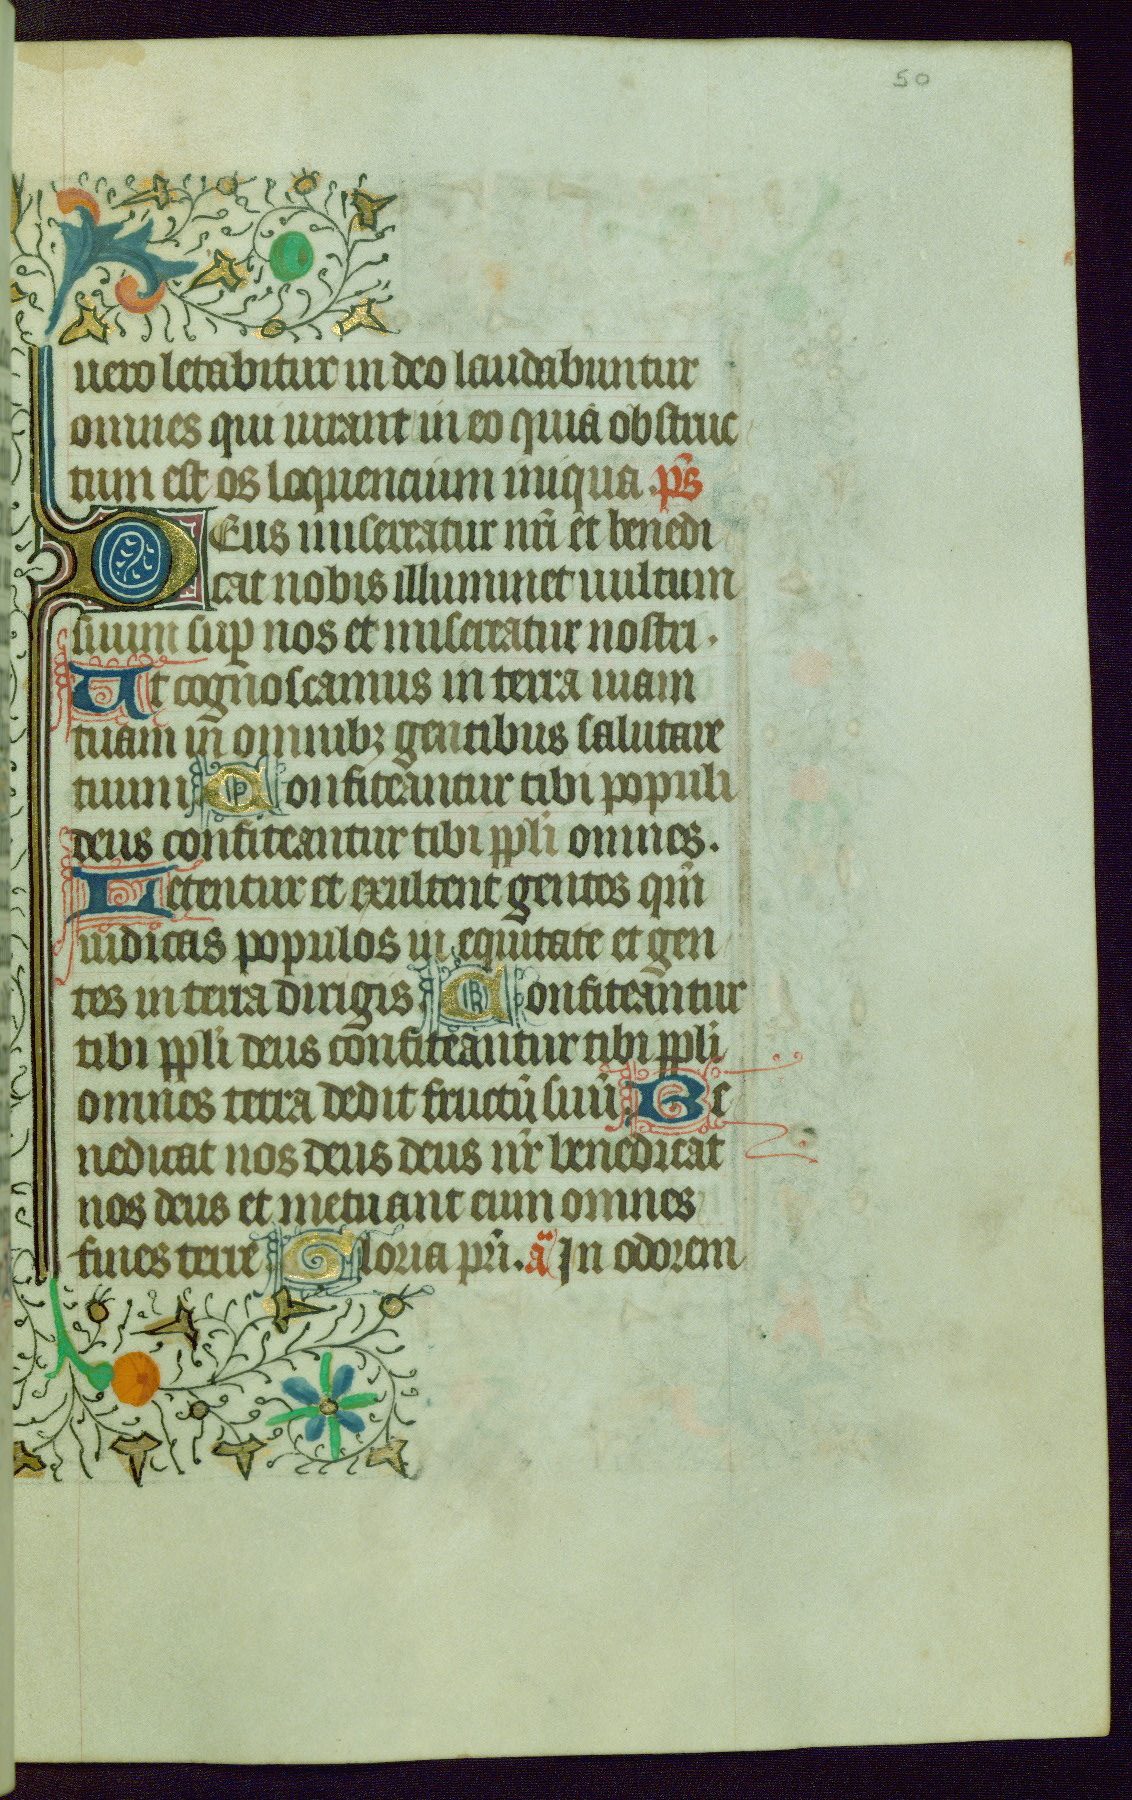 50
uero letabitur in deo laudabuntur
omnes qui iurant in eo quia obstruc
tum est os loquencium iniqua. ps̄
Deus misereatur nr̄i et benedi
cat nobis illuminet uultum
suum sup̱ nos et misereatur nostri.
Ut cognoscamus in terra uiam
tuam in omnibꝫ gentibus salutare
tuum Confiteantur tibi populi
deus confiteantur tibi pp̄li omnes.
Letentur et exultent gentes qm̄
iudicas populos in equitate et gen
tes in terra dirigis Confiteantur
tibi pp̄li deus confiteantur tibi pp̄li
omnes terra dedit fructū suū. Be
nedicat nos deus deus nr̄ benedicat
nos deus et metuant eum omnes
fines terre Gloria pr̄i. a᷑ In odorem